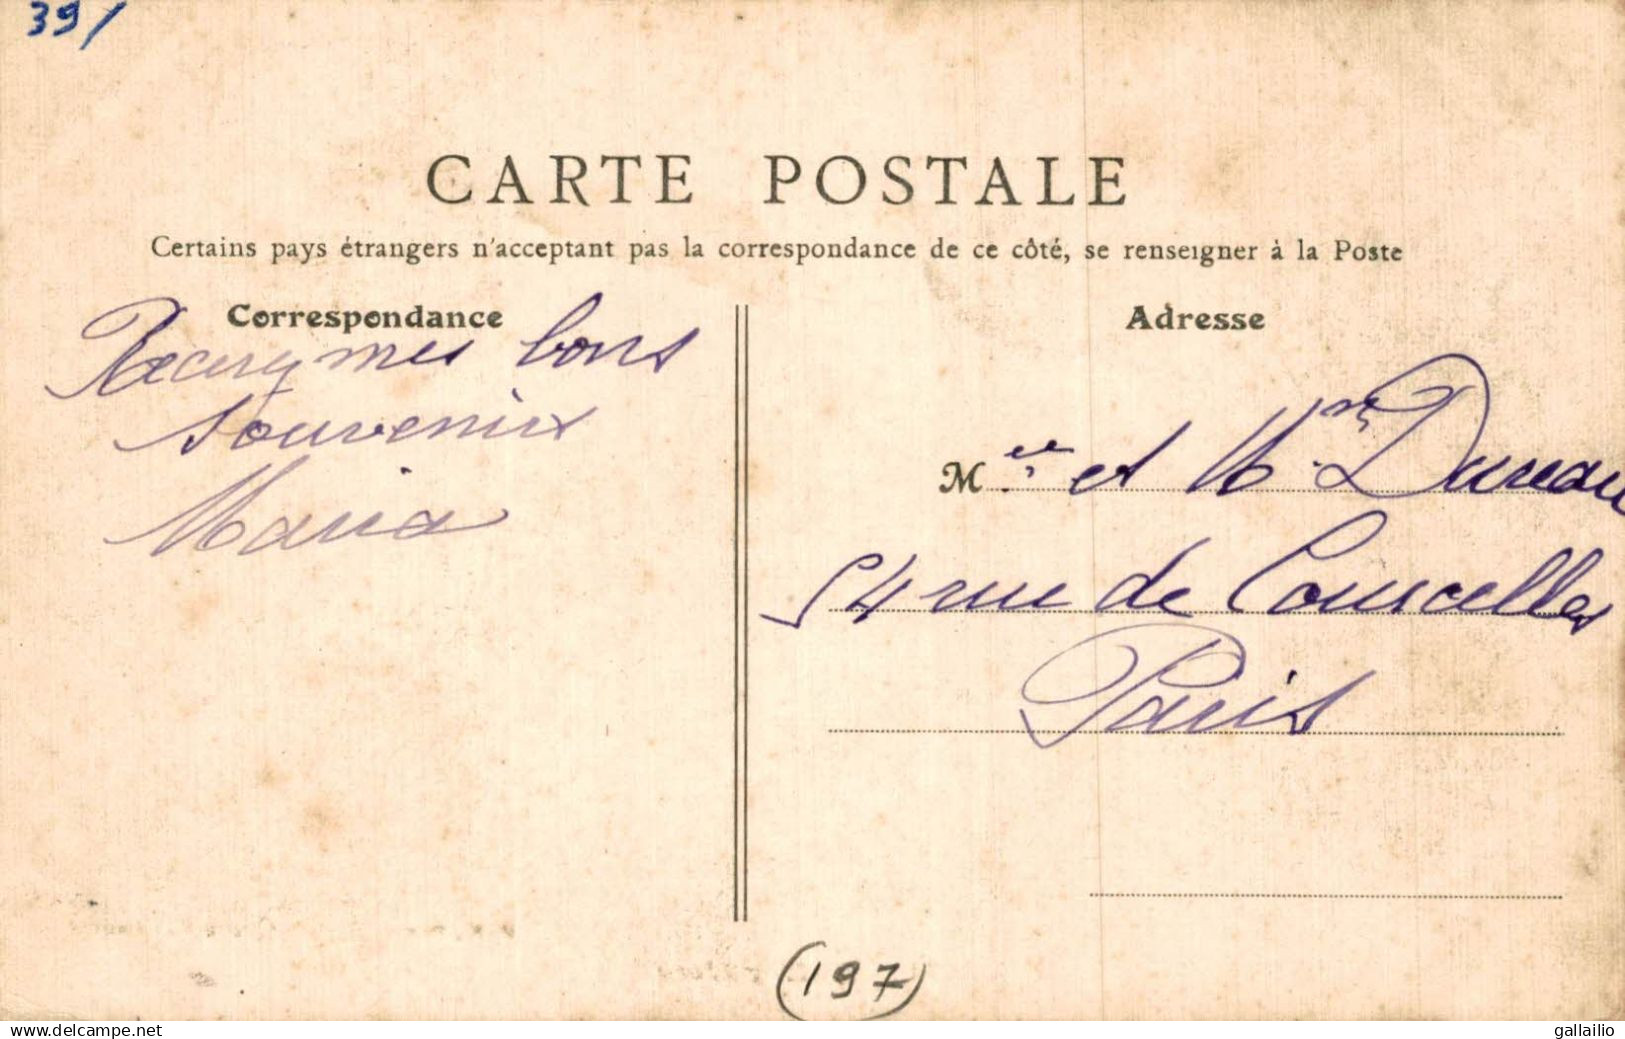 39/
CARTE POSTALE
Certains pays étrangers n'acceptant pas la correspondance de ce côté, se renseigner à la Poste
Correspondance
Recevez mes bons
souvenirs
Maria
Adresse
M et Mr Dureau
54 rue de Courcelles
Paris
(197)
www.delcampe.net
gallailio